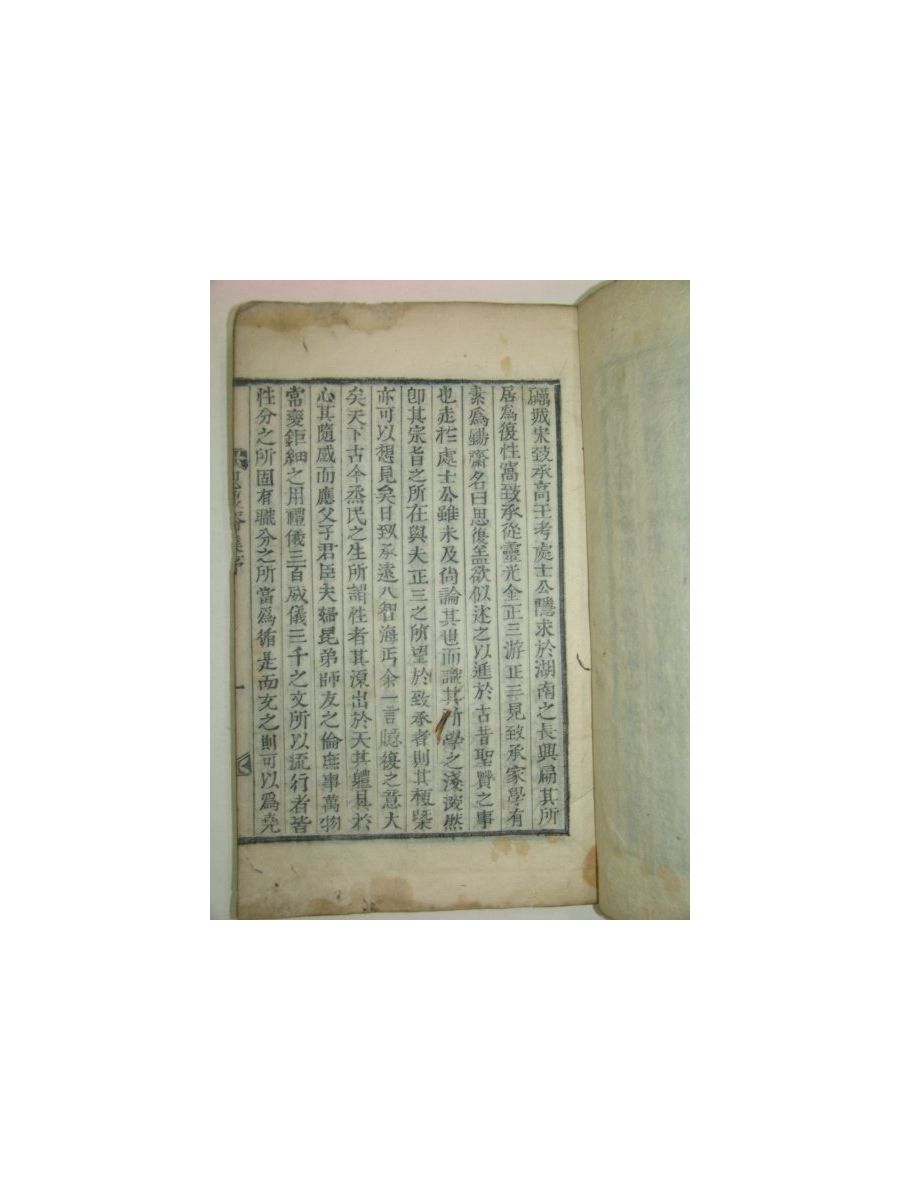 礪城宋致承高王考處士公隱求於湖南之長興扁其所
居爲復性窩致承從靈光金正三游正三見致承家學有
素爲錫齋名曰思復盖欲似述之以進於古昔聖賢之事
也走於處士公雖未及尙論其世而識其所學之淺深然
卽其宗旨之所在與夫正三之所望於致承者則其梗槩
亦可以想見矣日致承遠入智海丐余一言噫復之意大
矣天下古今烝民之生所謂性者其源出於天其軆具於
心其隨感而應父子君臣夫婦昆弟師友之倫庶事萬物
常變鉅細之用禮儀三百威儀三千之文所以流行者皆
性分之所固有職分之所當爲循是而充之則可以爲堯
思復齋集序
一